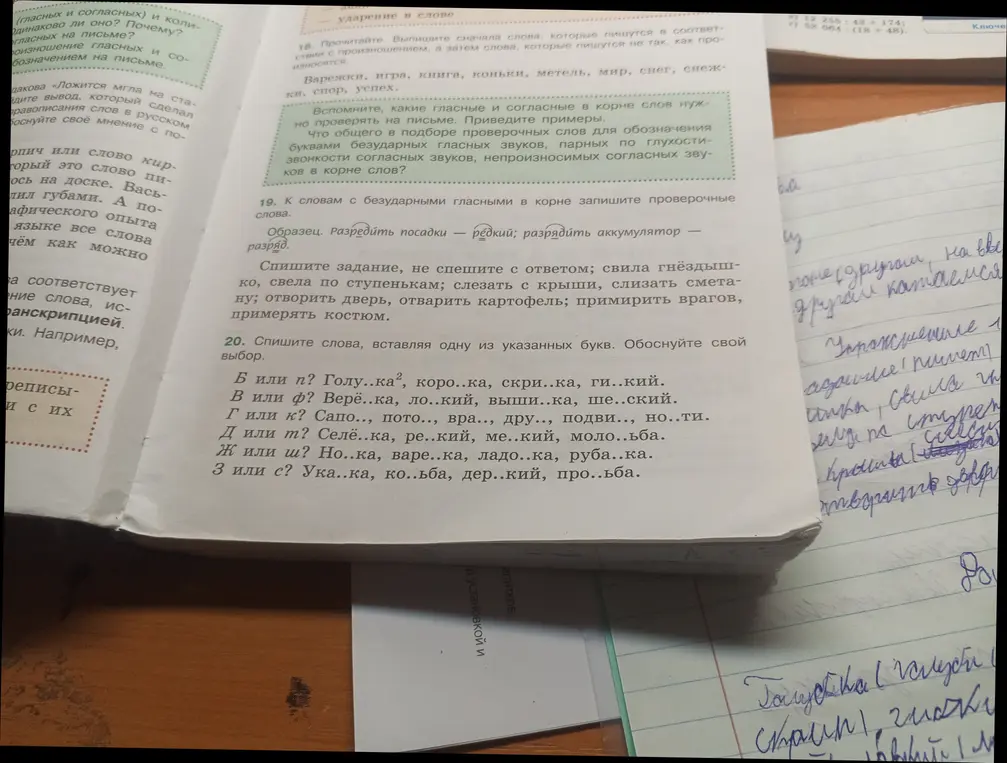 (гласных и согласных) и коли-
динаково ли оно? Почему?
гласных на письме?
роизношение гласных и со-
бозначением на письме.
«Ложится мгла на ста-
дите вывод, который сделал
равописания слов в русском
основуйте своё мнение с по-
рпич или слово кир-
торый это слово пи-
ось на доске. Вась-
лил губами. А по-
афического опыта
языке все слова
чём как можно
ва соответствует
ение слова, ис-
ранскрипцией.
ки. Например,
реписы-
и с их
ударение в слове
18. Прочитайте. Выпишите сначала слова, которые пишутся в соответ-
ствии с произношением, а затем слова, которые пишутся не так, как про-
износятся.
Варежки, игра, книга, коньки, метель, мир, снег, снеж-
ки, спор, успех.
Вспомните, какие гласные и согласные в корне слов нуж-
но проверять на письме. Приведите примеры.
Что общего в подборе проверочных слов для обозначения
буквами безударных гласных звуков, парных по глухости-
звонкости согласных звуков, непроизносимых согласных зву-
ков в корне слов?
19. К словам с безударными гласными в корне запишите проверочные
слова.
Образец. Разредить посадки — редкий; разрядить аккумулятор —
разряд.
Спишите задание, не спешите с ответом; свила гнёздыш-
ко, свела по ступенькам; слезать с крыши, слизать смета-
ну; отворить дверь, отварить картофель; примирить врагов,
примерять костюм.
20. Спишите слова, вставляя одну из указанных букв. Обоснуйте свой
выбор.
Б или п? Голу..ка², коро..ка, скри..ка, ги..кий.
В или ф? Верё..ка, ло..кий, выши..ка, ше..ский.
Г или к? Сапо.., пото.., вра.., дру.., подви.., но..ти.
Д или т? Селё..ка, ре..кий, ме..кий, моло..ьба.
Ж или ш? Но..ка, варе..ка, ладо..ка, руба..ка.
З или с? Ука..ка, ко..ьба, дер..кий, про..ьба.
12 256 : 48 + 174
564 : (18 + 48).
Ключе
другом, на
другом катаемся
Упражнение
свила
по
Голубка (голуби